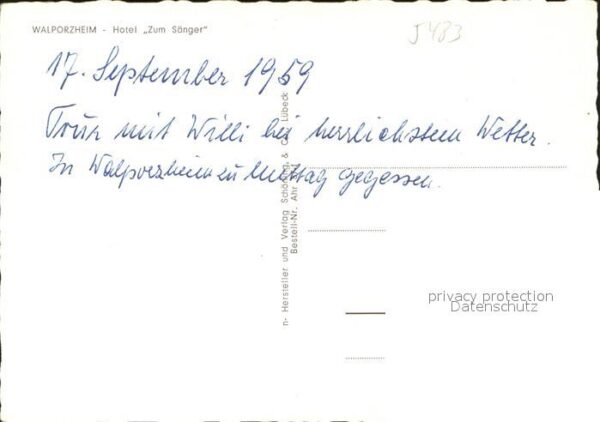 WALPORZHEIM - Hotel „Zum Sänger"
5483
17. September 1959
Tour mit Willi bei herrlichstem Wetter.
In Walporzheim zu Mittag gegessen.
n- Hersteller und Verlag Schöning & Co Lübeck
Bestell-Nr. Ahr
privacy protection
Datenschutz